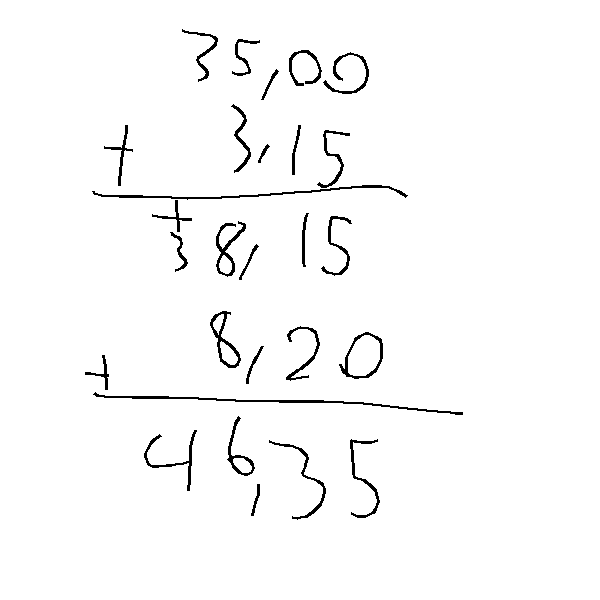 35,00
+ 3,15
+
38,15
+ 8,20
46,35